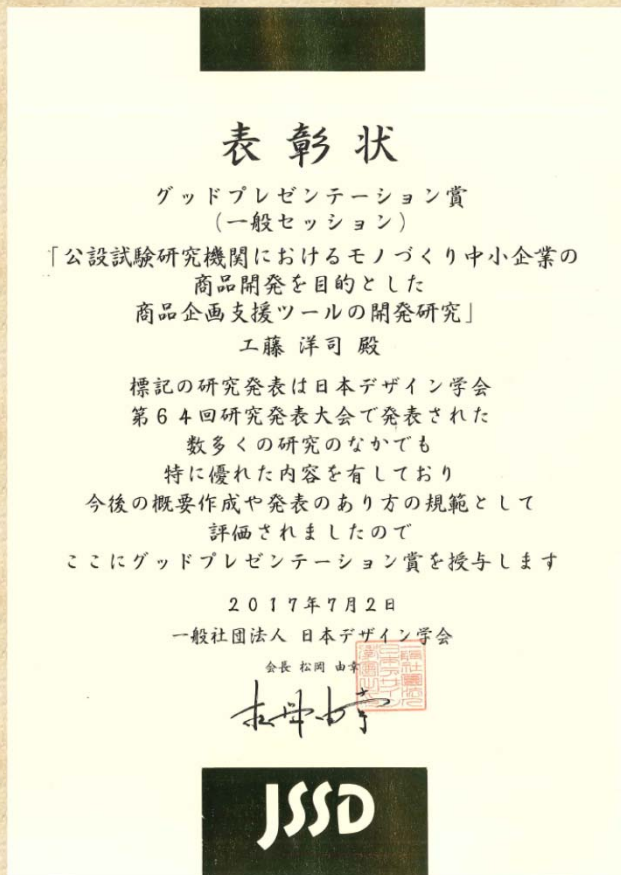 表彰状
グッドプレゼンテーション賞
(一般セッション)
「公設試験研究機関におけるモノづくり中小企業の
商品開発を目的とした
商品企画支援ツールの開発研究」
工藤 洋司 殿
標記の研究発表は日本デザイン学会
第64回研究発表大会で発表された
数多くの研究のなかでも
特に優れた内容を有しており
今後の概要作成や発表のあり方の規範として
評価されましたので
ここにグッドプレゼンテーション賞を授与します
2017年7月2日
一般社団法人 日本デザイン学会
会長 松岡 由幸
JSSD